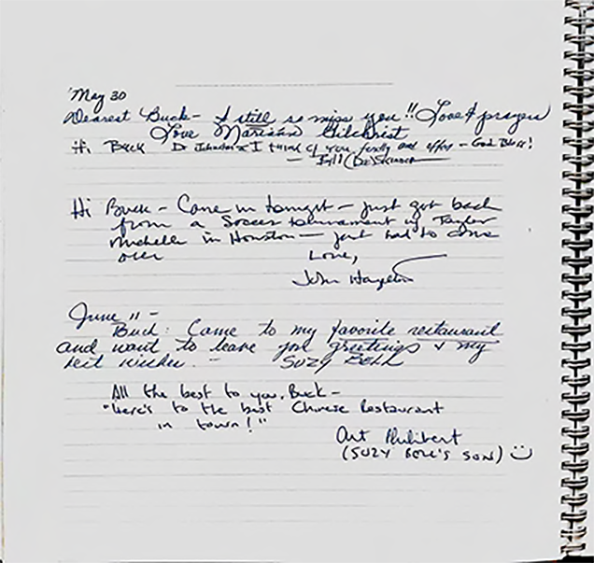 May 30
Dearest Buck - I still so miss you!! Love & prayers
Love Marian Gilchrist
Hi Buck Dr Johnson & I think of you fondly and often - God Bless!
- Bill (De)
Hi Buck - Came in tonight - just got back
from a Soccer tournament w/ Taylor
Michelle in Houston - just had to come
over Love,
John
June 11 -
Buck: Came to my favorite restaurant
and want to leave you greetings & my
best wishes. - SUZY BOLL
All the best to you, Buck -
"here's to the best Chinese Restaurant
in town!"
Art Philibert
(SUZY BOLL'S SON)